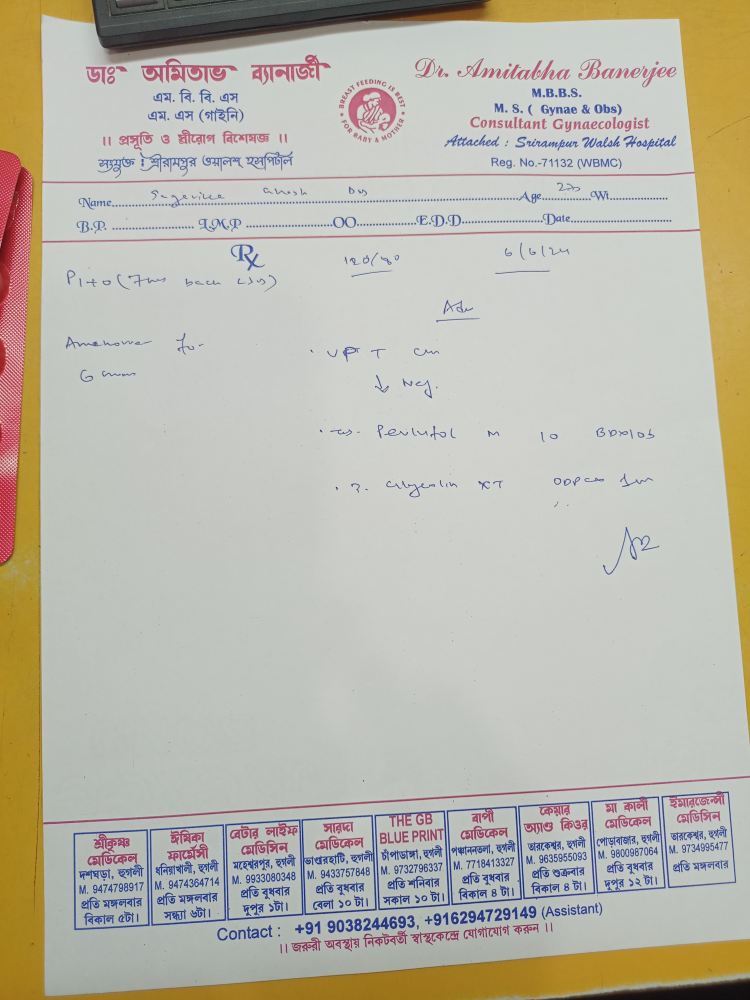 ডাঃ অমিতাভ ব্যানার্জী
এম. বি. বি. এস
এম. এস (গাইনি)
।। প্রসূতি ও স্ত্রীরোগ বিশেষজ্ঞ ।।
সংযুক্ত : শ্রীরামপুর ওয়ালশ্ হসপিটাল
BREAST FEEDING IS BEST
FOR BABY & MOTHER
Dr. Amitabha Banerjee
M.B.B.S.
M. S. ( Gynae & Obs)
Consultant Gynaecologist
Attached : Srirampur Walsh Hospital
Reg. No.-71132 (WBMC)
Name Ghosh Age 23 Wt
B.P. L.M.P OO E.D.D Date
Rx 120/80 6/6/24
P1+0 (7 back
Adv
for
6
UPT
↓ Neg.
M 10 BDx10d
XT 1m
শ্রীকৃষ্ণ মেডিকেল
দশঘড়া, হুগলী
M. 9474798917
প্রতি মঙ্গলবার
বিকাল ৫টা।
ঈমিকা ফার্মেসী
ধনিয়াখালী, হুগলী
M. 9474364714
প্রতি মঙ্গলবার
সন্ধ্যা ৬টা।
বেটার লাইফ মেডিসিন
মহেশ্বরপুর, হুগলী
M. 9933080348
প্রতি বুধবার
দুপুর ১টা।
সারদা মেডিকেল
ভাণ্ডারহাটি, হুগলী
M. 9433757848
প্রতি বুধবার
বেলা ১০ টা।
THE GB BLUE PRINT
চাঁপাডাঙ্গা, হুগলী
M. 9732796337
প্রতি শনিবার
সকাল ১০ টা।
বাপী মেডিকেল
পঞ্চাননতলা, হুগলী
M. 7718413327
প্রতি বুধবার
বিকাল ৪ টা।
কেয়ার অ্যাণ্ড কিওর
তারকেশ্বর, হুগলী
M. 9635955093
প্রতি শুক্রবার
বিকাল ৪ টা।
মা কালী মেডিকেল
পোড়াবাজার, হুগলী
M. 9800987064
প্রতি বুধবার
দুপুর ১২ টা।
ইমারজেন্সী মেডিসিন
তারকেশ্বর, হুগলী
M. 9734995477
প্রতি মঙ্গলবার
Contact : +91 9038244693, +916294729149 (Assistant)
।। জরুরী অবস্থায় নিকটবর্তী স্বাস্থ্যকেন্দ্রে যোগাযোগ করুন ।।